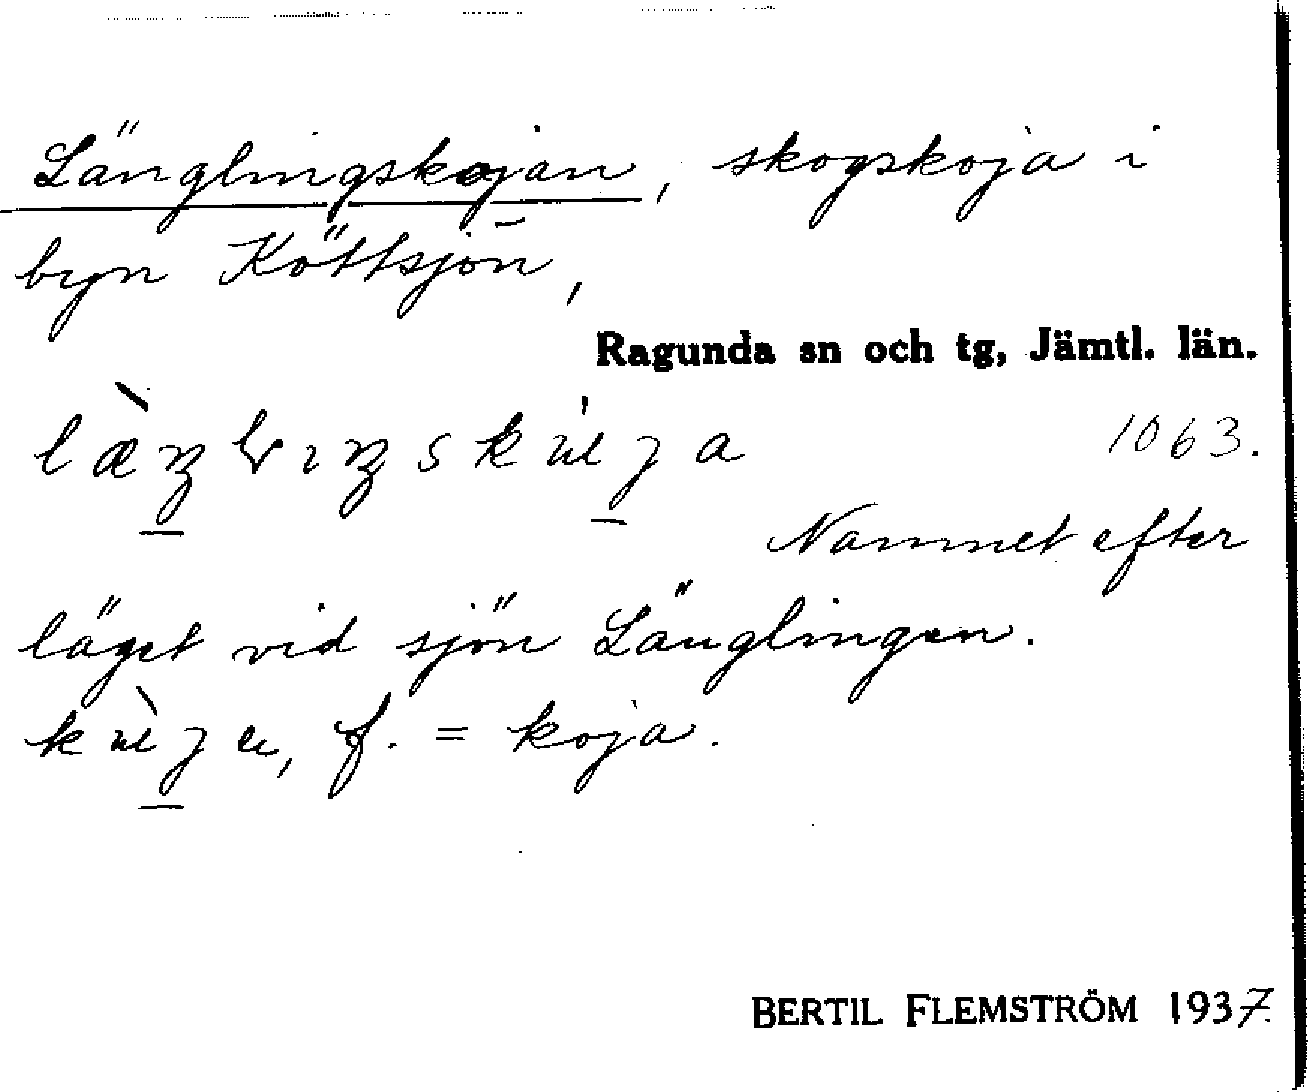 Länglingskojan, skogskoja i
byn Köttsjön,
Ragunda sn och tg, Jämtl. län.
1063.
Namnet efter
läget vid sjön Länglingen.
f. = koja.
BERTIL FLEMSTRÖM 1937.